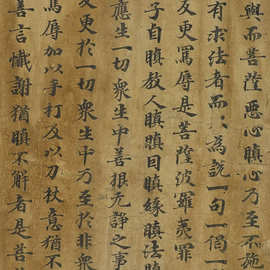 與而菩薩惡心瞋心乃至不施
有求法者而〻為說一句一偈一
反更罵辱是菩薩波羅夷罪
子自瞋教人瞋瞋因瞋緣瞋法瞋
應生一切眾生中善根无諍之事
反更於一切眾生中乃至於非眾
罵辱加以手打及以刀杖意猶不
善言懺謝猶瞋不解者是菩薩